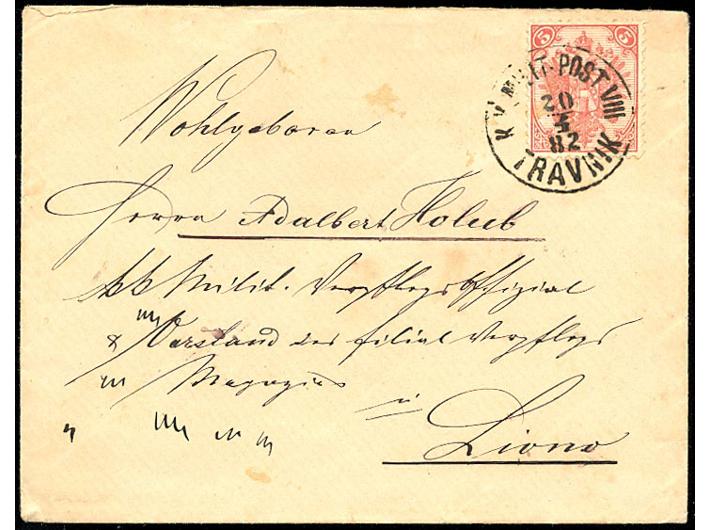 5 5
K.K. MILIT. POST VIII
20
4
82
TRAVNIK
Wohlgeboren
Herrn Adalbert Holub
kk Milit. Verpflegs Offizial
& Vorstand des filial Verpflegs
Magazins
in
Livno